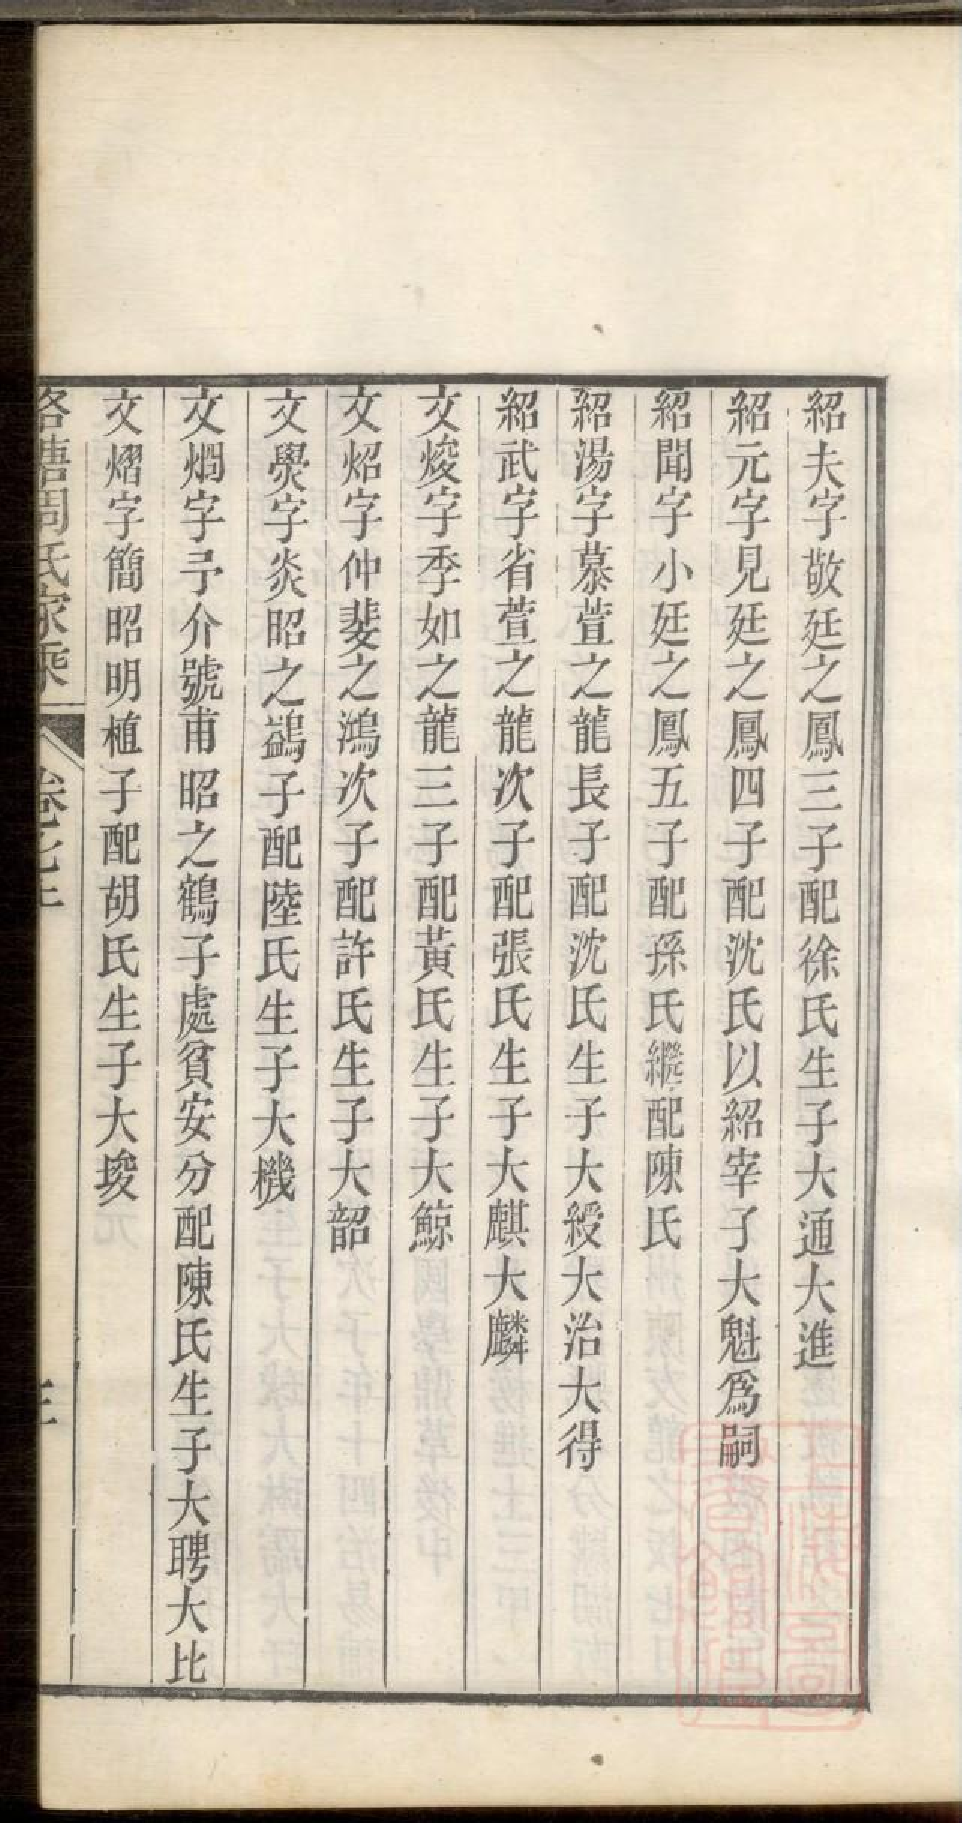 紹夫字敬廷之鳳三子配徐氏生子大通大進
紹元字見廷之鳳四子配沈氏以紹宰子大魁爲嗣
紹聞字小廷之鳳五子配孫氏繼配陳氏
紹湯字慕萱之龍長子配沈氏生子大綬大治大得
紹武字省萱之龍次子配張氏生子大麒大麟
文焌字季如之龍三子配黃氏生子大鯨
文炤字仲斐之鴻次子配許氏生子大韶
文爂字炎昭之鷁子配陸氏生子大機
文燜字予介號甫昭之鶴子處貧安分配陳氏生子大聘大比
文熠字簡昭明植子配胡氏生子大埈
洛塘周氏家乘
卷七上
三